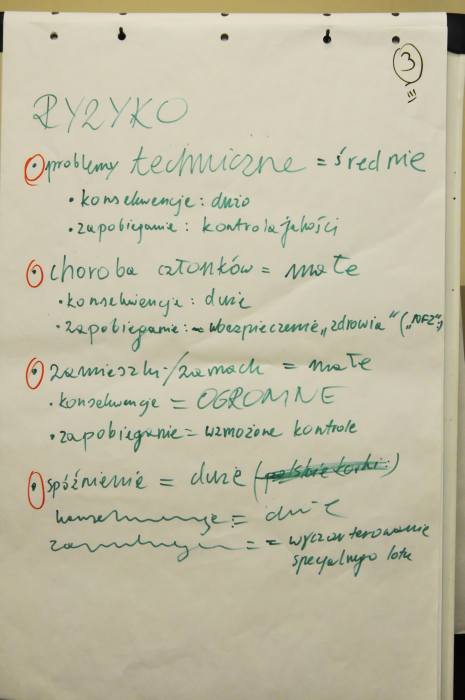 3
RYZYKO
• problemy techniczne = średnie
• konsekwencje: dużo
• zapobieganie: kontrola jakości
• choroba członków = małe
• konsekwencje: duże
• zapobieganie: ubezpieczenie „zdrowia“ („NFZ“)
• zamieszki/zamach = małe
• konsekwencje = OGROMNE
• zapobieganie = wzmożone kontrole
• spóźnienie = duże (polskie korki)
= duże
= wyczarterowanie
specjalnego lotu